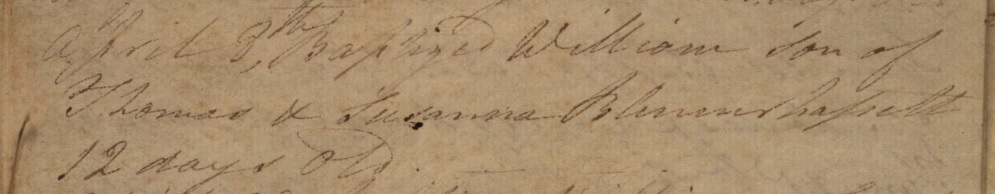 April 3th, Baptized William son of
Thomas & Susanna Blennerhassett
12 days Old.